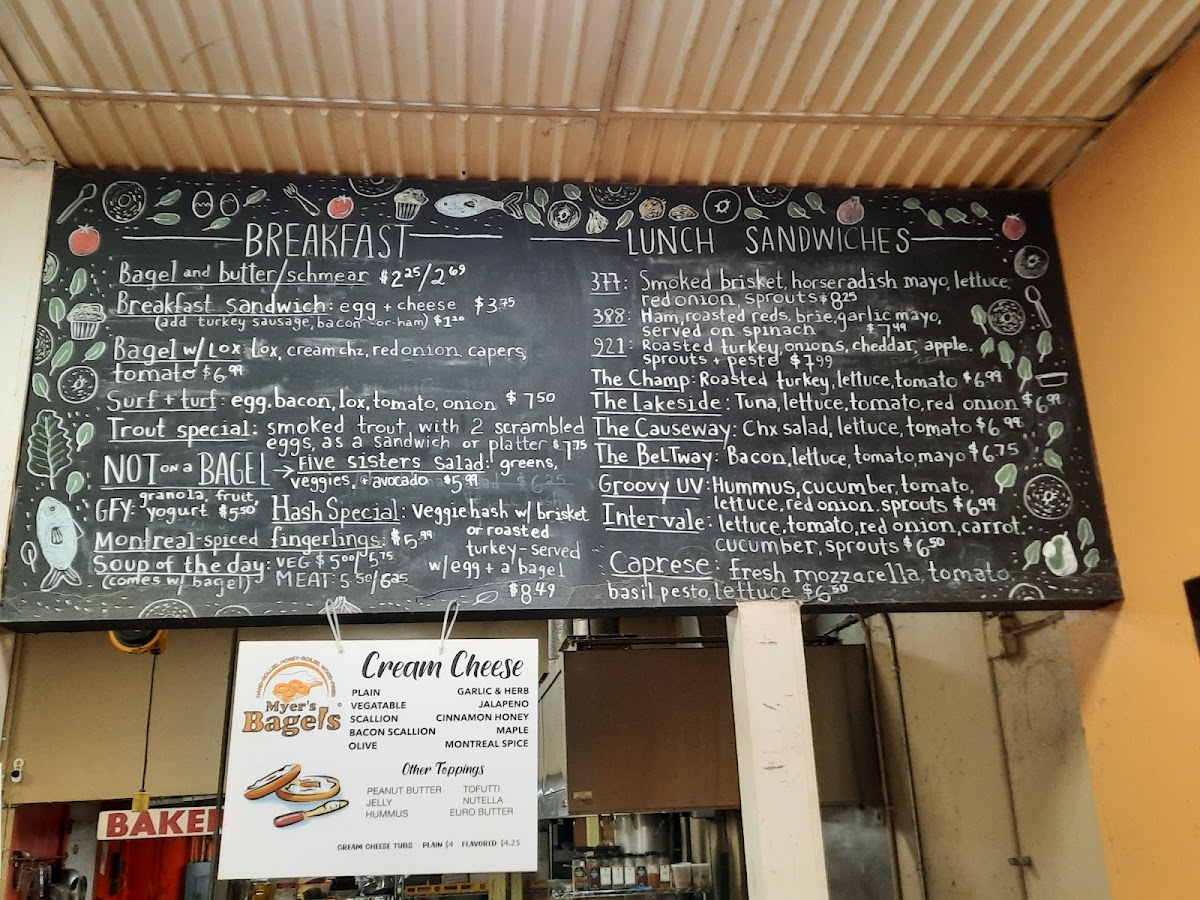 BREAKFAST
Bagel and butter/schmear $2.25/2.69
Breakfast Sandwich: egg + cheese $3.75
(add turkey sausage, bacon -or- ham) $1.20
Bagel w/ Lox: Lox, cream chz, red onion, capers,
tomato $6.99
Surf + turf: egg, bacon, lox, tomato, onion $7.50
Trout special: smoked trout, with 2 scrambled
eggs, as a sandwich or platter $7.75
NOT ON A BAGEL → Five sisters Salad: greens,
veggies, + avocado $5.99
GFY: granola, fruit,
yogurt $5.50
Hash Special: Veggie hash w/ brisket
or roasted
turkey - served
w/ egg + a bagel
$8.49
Montreal-spiced fingerlings: $5.99
Soup of the day: VEG $5.00/5.75
(comes w/ bagel) MEAT: 5.50/6.25
LUNCH SANDWICHES
377: Smoked brisket, horseradish mayo, lettuce,
red onion, sprouts $8.25
388: Ham, roasted reds, brie, garlic mayo,
served on spinach $7.49
921: Roasted turkey, onions, cheddar, apple,
sprouts + pesto $7.99
The Champ: Roasted turkey, lettuce, tomato $6.99
The Lakeside: Tuna, lettuce, tomato, red onion $6.99
The Causeway: Chx salad, lettuce, tomato $6.99
The BeLTway: Bacon, lettuce, tomato, mayo $6.75
Groovy UV: Hummus, cucumber, tomato,
lettuce, red onion, sprouts $6.99
Intervale: lettuce, tomato, red onion, carrot,
cucumber, sprouts $6.50
Caprese: fresh mozzarella, tomato,
basil pesto, lettuce $6.50
HAND-ROLLED, HONEY-BOILED, WOOD-FIRED
Myer's
Bagels
Cream Cheese
PLAIN GARLIC & HERB
VEGATABLE JALAPENO
SCALLION CINNAMON HONEY
BACON SCALLION MAPLE
OLIVE MONTREAL SPICE
Other Toppings
PEANUT BUTTER TOFUTTI
JELLY NUTELLA
HUMMUS EURO BUTTER
CREAM CHEESE TUBS PLAIN $4 FLAVORED $4.25
BAKE